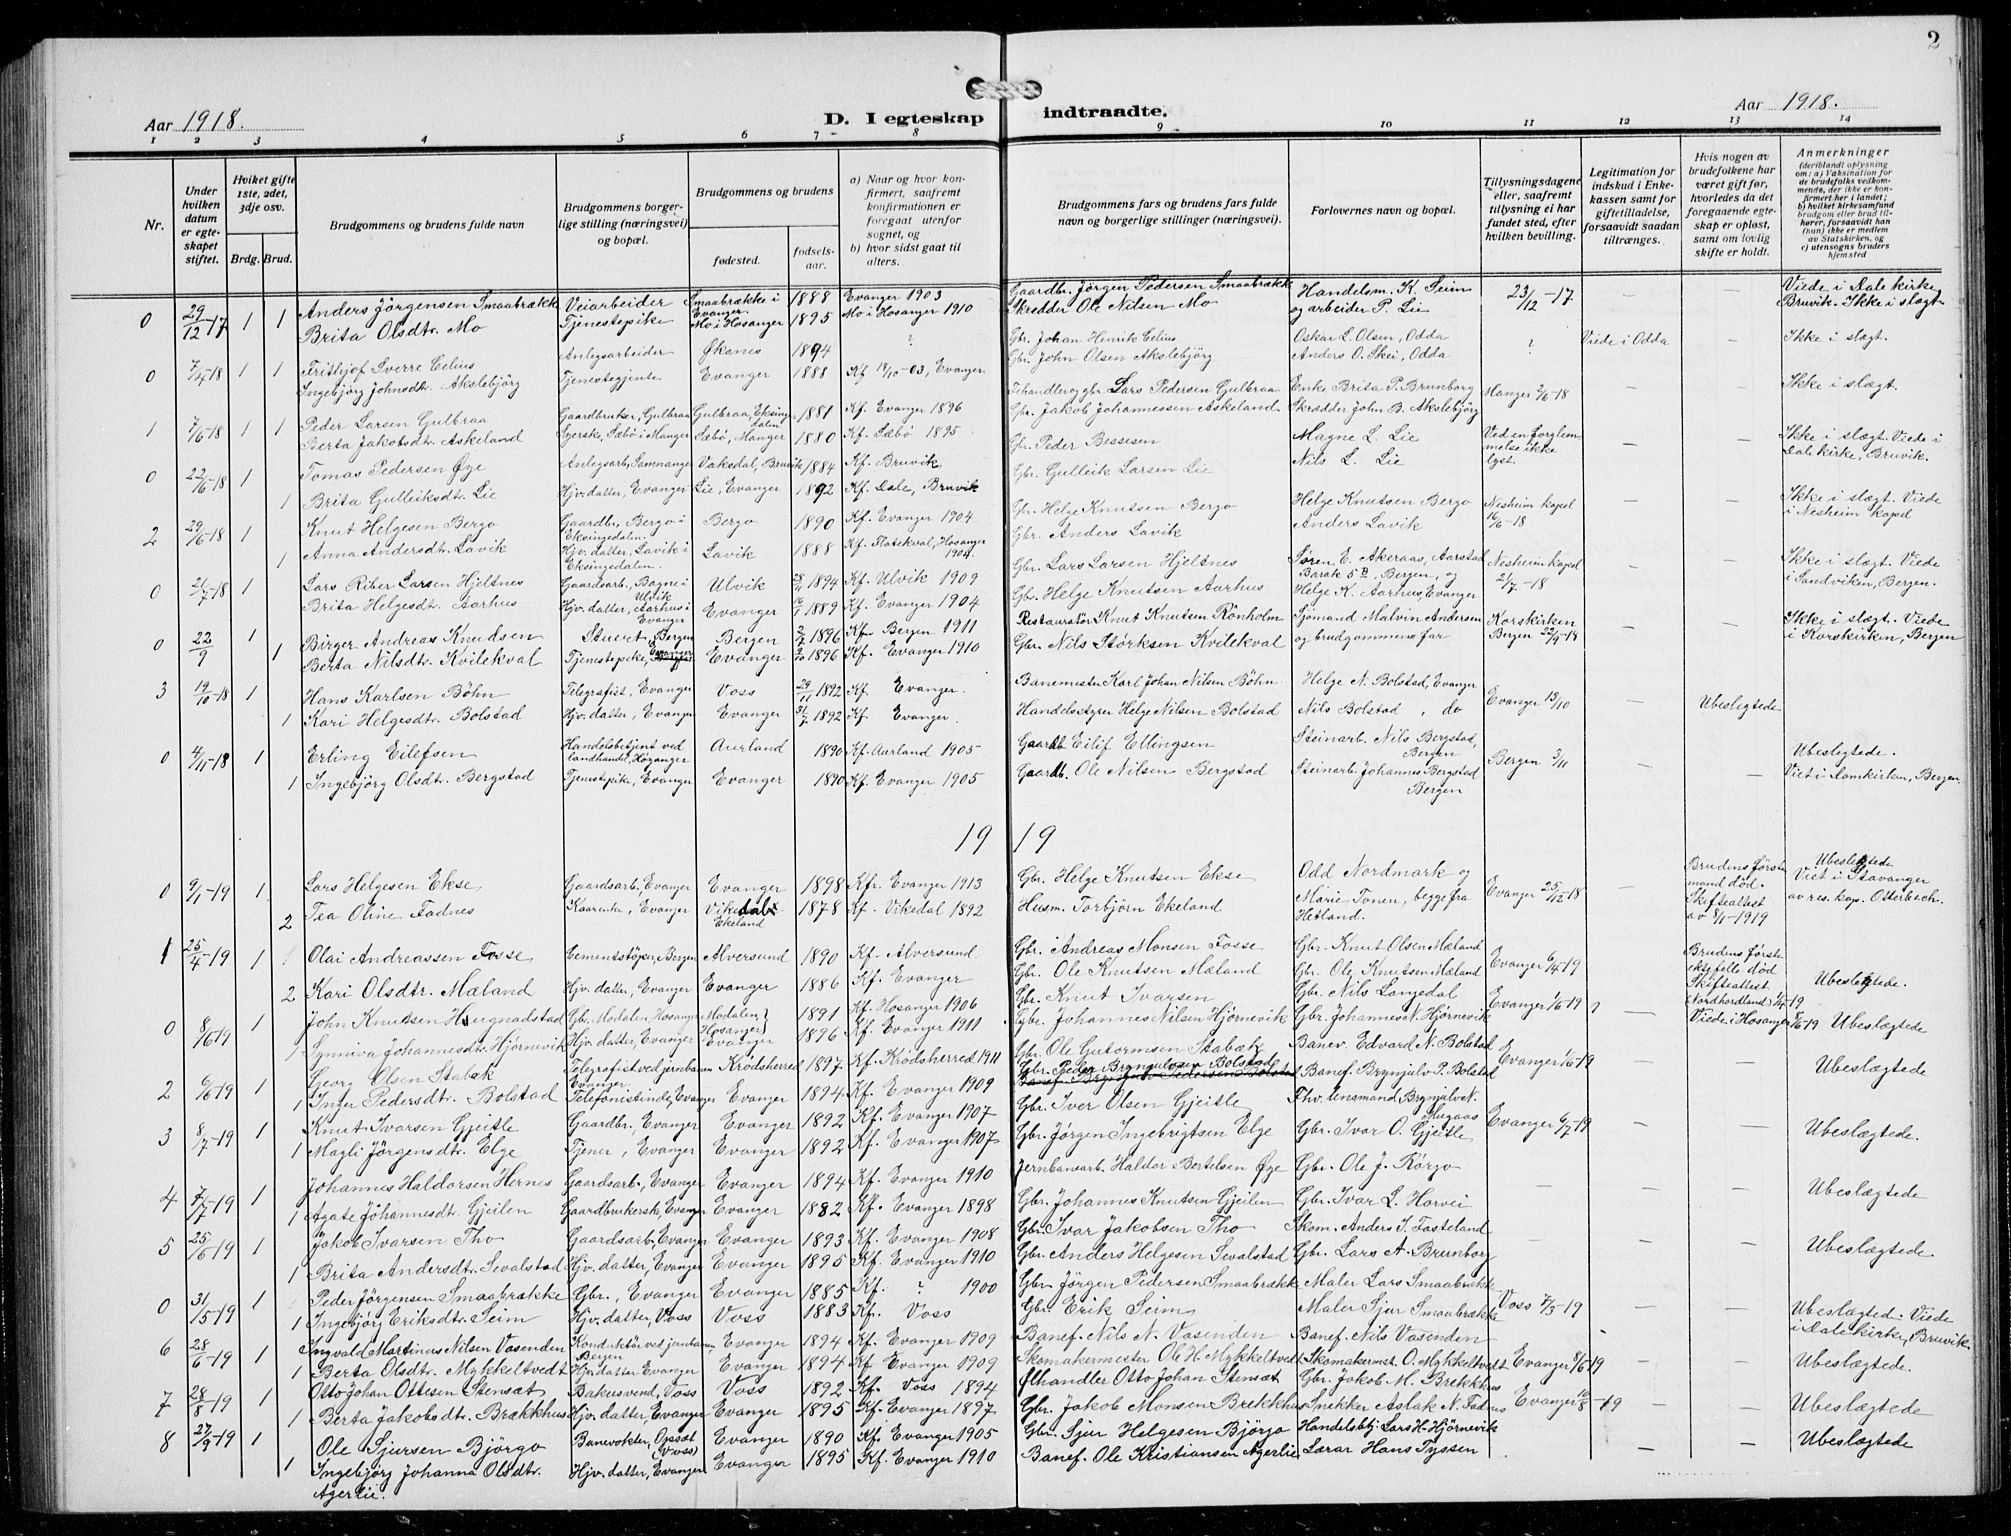 2
Aar 1918.
D. I egteskap indtraadte.
Aar 1918.
1 2 3 4 5 6 7 8 9 10 11 12 13 14
Nr.
Under hvilken datum er egteskapet stiftet.
Hviket gifte 1ste, 2det, 3dje osv.
Brdg. Brud.
Brudgommens og brudens fulde navn
Brudgommens borgerlige stilling (næringsvei) og bopæl.
Brudgommens og brudens
fødested.
fødselsaar.
a) Naar og hvor konfirmert, saafremt konfirmationen er foregaat utenfor sognet, og
b) hvor sidst gaat til alters.
Brudgommens fars og brudens fars fulde navn og borgerlige stillinger (næringsvei).
Forlovernes navn og bopæl.
Tillysningsdagene eller, saafremt tillysning ei har fundet sted, efter hvilken bevilling.
Legitimation for indskud i Enkekassen samt for giftetilladelse, forsaavidt saadan tiltrænges.
Hvis nogen av brudefolkene har været gift før, hvorledes da det foregaaende egteskap er opløst, samt om lovlig skifte er holdt.
Anmerkninger
(deriblandt oplysning om: a) Vaksination for de brudefolks vedkommende, der ikke er konfirmert her i landet; b) hvilket kirkesamfund brudgom eller brud tilhører, forsaavidt han (hun) ikke er medlem av Statskirken, og c) utensogns bruders hjemsted
0 29/12-17 1 1 Anders Jörgensen Smaabrække Veiarbeider Smaabrække i Evanger 1888 Evanger 1903 Gaardbr. Jörgen Pedersen Smaabrække Handelsm. K. Seim 23/12-17 — — Viede i Dale kirke
Brita Olsdtr. Mo Tjenestepike Mo i Hosanger 1895 Mo i Hosanger 1910 Skredder Ole Nilsen Mo og arbeider P. Lie Bruvik. Ikke i slægt.
0 7/4-18 1 1 Frithjof Sverre Celius Anlegsarbeider Øksnes 1894 ? Gbr. Johan Henrik Celius Oskar L. Olsen, Odda ? Viede i Odda — Ikke i slægt.
Ingebjörg Johnsdtr. Akslebjörg Tjenestegjente Evanger 1888 Kf 18/10-03, Evanger Gbr. John Olsen Akslebjörg Anders O. Skei, Odda
1 7/6-18 1 1 Peder Larsen Gulbraa Gaardbruker, Gulbraa Gulbraa, Eksingedalen 1881 Kf. Evanger 1896 Gbr. Lars Pedersen Gulbraa Enke Brita P. Brunborg Manger 2/6-18 — — Ikke i slægt.
Berta Jakobsdtr. Askeland Syerske, Sæbö i Manger Sæbö, Manger 1880 Kf. Sæbö 1895 Gbr. Jakob Johannessen Askeland Skrædder John B. Akslebjörg
0 22/6-18 1 Tomas Pedersen Øye Anlegsarb., Samnanger Vaksdal, Bruvik 1884 Kf. Bruvik Gbr. Peder Bessesen Magne L. Lie Ved en forglemmelse ikke lyst. — — Ikke i slægt. Viede i Dale kirke, Bruvik.
1 Brita Gulleiksdtr. Lie Hjv. datter, Evanger Lie, Evanger 1892 Kf. Dale, Bruvik Gbr. Gulleik Larsen Lie Nils L. Lie
2 29/6-18 1 Knut Helgesen Bergo Gaardbr., Bergo i Eksingedalen. Bergo 1890 Kf. Evanger 1904 Gbr. Helge Knutsen Bergo Helge Knutsen Bergo Nesheim kapel 16/6-18 — — Ikke i slægt. Viede i Nesheim kapel
1 Anna Andersdtr. Lavik Hjv. datter, Lavik i Eksingedalen. Lavik 1888 Kf. Flatekval, Hosanger 1904 Gbr. Anders Lavik Anders Lavik
0 21/7-18 1 Lars Riber Larsen Hjeltnes Gaardsarb., Bagne i Ulvik Ulvik 1894 Kf. Ulvik 1909 Gbr. Lars Larsen Hjeltnes Søren E. Akeraas, Aarstad Barak 5 B, Bergen, og Nesheim kapel 21/7-18 — — Ikke i slægt. Viede i Sandviken, Bergen.
1 Brita Helgesdtr. Aarhus Hjv. datter, Aarhus i Evanger Evanger 1889 Kf. Evanger 1904 Gbr. Helge Knutsen Aarhus Helge K. Aarhus, Evanger
0 22/9 1 Birger Andreas Knudsen Stuert, Bergen Bergen 1896 Kf. Bergen 1911 Restauratör Knut Knutsen Rönholm Sjömand Malvin Andersen Korskirken Bergen 22/9-18 — — Ikke i slægt. Viede i Korskirken, Bergen
1 Berta Nilsdtr. Kvilekval Tjenestepike, Evanger Evanger 1896 Kf. Evanger 1910 Gbr. Nils Störksen Kvilekval og brudgommens far
3 19/10-18 1 Hans Karlsen Böhn Telegrafist, Evanger Voss 29/11 1892 Kf. Evanger. Banemester Karl Johan Nilsen Böhn Helge N. Bolstad, Evanger Evanger 13/10 — Ubeslegtede
1 Kari Helgesdtr. Bolstad Hjv. datter, Evanger Evanger 31/7 1892 Kf. Evanger. Handelsstyrer Helge Nilsen Bolstad Nils Bolstad, do
0 4/11-18 1 Erling Eilefsen Handelsbetjent ved landhandel, Høyanger Aurland 1890 Kf. Aurland 1905 Gaardb. Eilif Ellingsen Steinarb. Nils Bergstad, Bergen Bergen 3/11 — — Ubeslegtede.
1 Ingebjörg Olsdtr. Bergstad Tjenestepike, Evanger Evanger 1890 Kf. Evanger 1905 Gaardb. Ole Nilsen Bergstad Steinarb. Johannes Bergstad Bergen Viet i Domkirken, Bergen.
19 19
0 9/1-19 1 Lars Helgesen Ekse Gaardsarb., Evanger Evanger 1898 Kfr. Evanger 1913 Gbr. Helge Knutsen Ekse Odd Nordmark og Evanger 25/12-18 — Brudens første mand död. Skifteattest av 8/1-1919 Ubeslegtede Viet i Stavanger
2 Tea Oline Fadnes Kaarenke, Evanger Vikedal Ekeland 1878 Kf. Vikedal 1892 Husm. Torbjörn Ekeland Marie Tonen, begge fra Hetland. av res. kap. Otterbech.
1 25/4-19 1 Olai Andreassen Fosse Cementstöper, Bergen Alversund 1890 Kf. Alversund Gbr. Andreas Monsen Fosse Gbr. Knut Olsen Mæland Evanger 6/4-19 — Brudens første ektefelle död Skifteattest (Nordhordland) 1/4-19 Ubeslegtede.
2 Kari Olsdtr. Mæland Hjv. datter, Evanger Evanger 1886 Kf. Evanger Gbr. Ole Knutsen Mæland Gbr. Ole Knutsen Mæland
0 8/6-19 1 John Knutsen Haugnadstad Gbr. Modalen, Hosanger Modalen, Hosanger 1891 Kf. Hosanger 1906 Gbr. Knut Ivarsen Gbr. Nils Langedal Evanger 1/6-19 ? — Viede i Hosanger 8/6-19 Ubeslægtede
1 Synniva Johannesdtr. Hjörnevik Hjv. datter, Evanger Evanger 1896 Kf. Evanger 1911 Gbr. Johannes Nilsen Hjörnevik Gbr. Johannes N. Hjörnevik
2 6/6-19 1 Georg Olsen Stabæk Telegrafist ved jernbanen Evanger Krödsherred 1897 Kf. Krödsherred 1911 Gbr. Ole Gutormsen Stabæk Banev. Edvard N. Bolstad Evanger 1/6-19 — — Ubeslægtede
1 Inger Pedersdtr. Bolstad Telefonistinde, Evanger Evanger 1894 Kf. Evanger 1909 Gbr. Peder Brynjulvsen Bolstad Banef. Brynjulv P. Bolstad
3 8/7-19 1 Knut Ivarsen Gjeitle Gaardbr., Evanger Evanger 1892 Kf. Evanger 1907 Gbr. Iver Olsen Gjeitle Fhv. lensmand Brynjulv N. Mugaas Evanger 6/7-19 — — Ubeslægtede.
1 Magli Jörgensdtr. Elge Tjener, Evanger Evanger 1892 Kf. Evanger 1907 Gbr. Jörgen Ingebrigtsen Elge Gbr. Ivar O. Gjeitle
4 7/7-19 1 Johannes Haldorsen Hernes Gaardsarb., Evanger Evanger 1894 Kf. Evanger 1910 Jernbanearb. Haldor Bertelsen Øye Gbr. Ole J. Rörgo — — — Ubeslægtede
1 Agate Johannesdtr. Gjeilen Gaardbrukerske, Evanger Evanger 1882 Kf. Evanger 1898 Gbr. Johannes Knutsen Gjeilen Gbr. Ivar L. Horvei
5 25/6-19 1 Jakob Ivarsen Tho Gaardsarb., Evanger Evanger 1893 Kf. Evanger 1908 Gbr. Ivar Jakobsen Tho Skom. Anders I. Fasteland — — — Ubeslægtede.
1 Brita Andersdtr. Sevalstad Hjv. datter, Evanger Evanger 1895 Kf. Evanger 1910 Gbr. Anders Helgesen Sevalstad Gbr. Lars A. Brunborg
0 31/5-19 1 Peder Jörgensen Smaabrække Gbr., Evanger Evanger 1885 Kf. ? 1900 Gbr. Jörgen Pedersen Smaabrække Maler Lars Smaabrække Voss /5-19 — — Ubeslægtede. Viede
1 Ingebjörg Eriksdtr. Seim Hjv. datter, Voss Voss 1883 Kf. Voss Gbr. Erik Seim Maler Sjur Smaabrække i Dale kirke, Bruvik.
6 28/6-19 1 Ingvald Martinus Nilsen Vasenden Konduktör ved jernbanen, Bergen Evanger 1894 Kf. Evanger 1909 Banef. Nils N. Vasenden Banef. Nils Vasenden Evanger 8/6-19 — — Ubeslægtede.
1 Berta Olsdtr. Mykkeltvedt Hjv. datter Evanger Evanger 1894 Kf Evanger 1909 Skomakermester Ole H. Mykkeltvedt Skomakermst. O. Mykkeltvedt
7 28/8-19 1 Otto Johan Ottesen Stensæt Bakersvend, Voss Voss 1892 Kf. Voss 1894 Ølhandler Otto Johan Stensæt Gbr. Jakob M. Brekkhus Evanger 10/8-19 — — Ubeslægtede
1 Berta Jakobsdtr. Brækkhus Hjv. datter, Evanger Evanger 1895 Kf. Evanger 1897 Gbr. Jakob Monsen Brekkhus Snekker Aslak N. Fadnes
8 27/9-19 1 Ole Sjursen Björgo Banevokter, Opsæt (Voss) Evanger 1890 Kf. Evanger 1905 Gbr. Sjur Helgesen Björgo Handelsbtj. Lars H. Hjörnevik — — Ubeslægtede
1 Ingebjörg Johanna Olsdtr. Agerlie. Hjv. datter, Evanger Evanger 1895 Kf. Evanger 1910 Banef. Ole Kristiansen Agerlie Lærar Hans Tyssen